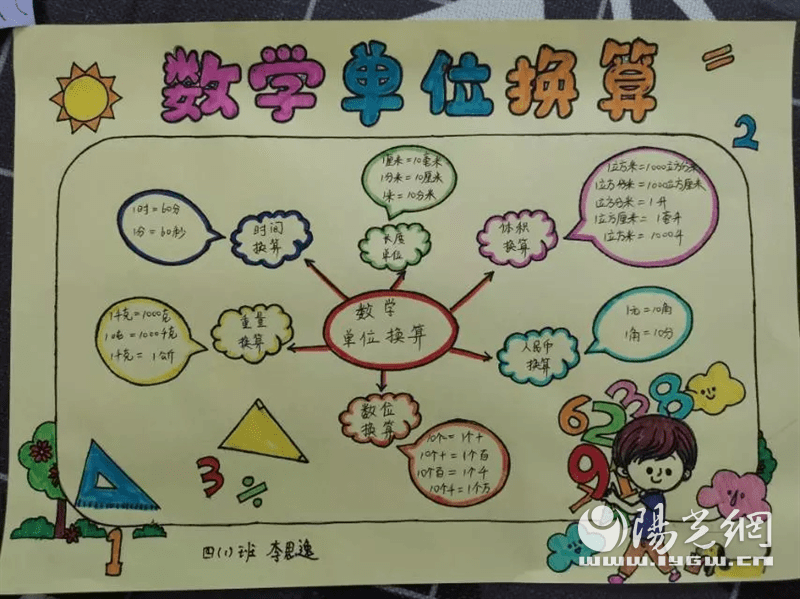 数学单位换算
=
2
1时=60分
1分=60秒
时间
换算
1厘米=10毫米
1分米=10厘米
1米=10分米
长度
单位
体积
换算
1立方米=1000立方分米
1立方分米=1000立方厘米
1立方分米=1升
1立方厘米=1毫升
1立方米=1000升
1千克=1000克
1吨=1000千克
1千克=1公斤
重量
换算
数学
单位换算
人民币
换算
1元=10角
1角=10分
数位
换算
10个一=1个十
10个十=1个百
10个百=1个千
10个千=1个万
6 2 3 8
9 1
3 ÷
1
四(1)班 李思逸
陽光網
www.iygw.cn